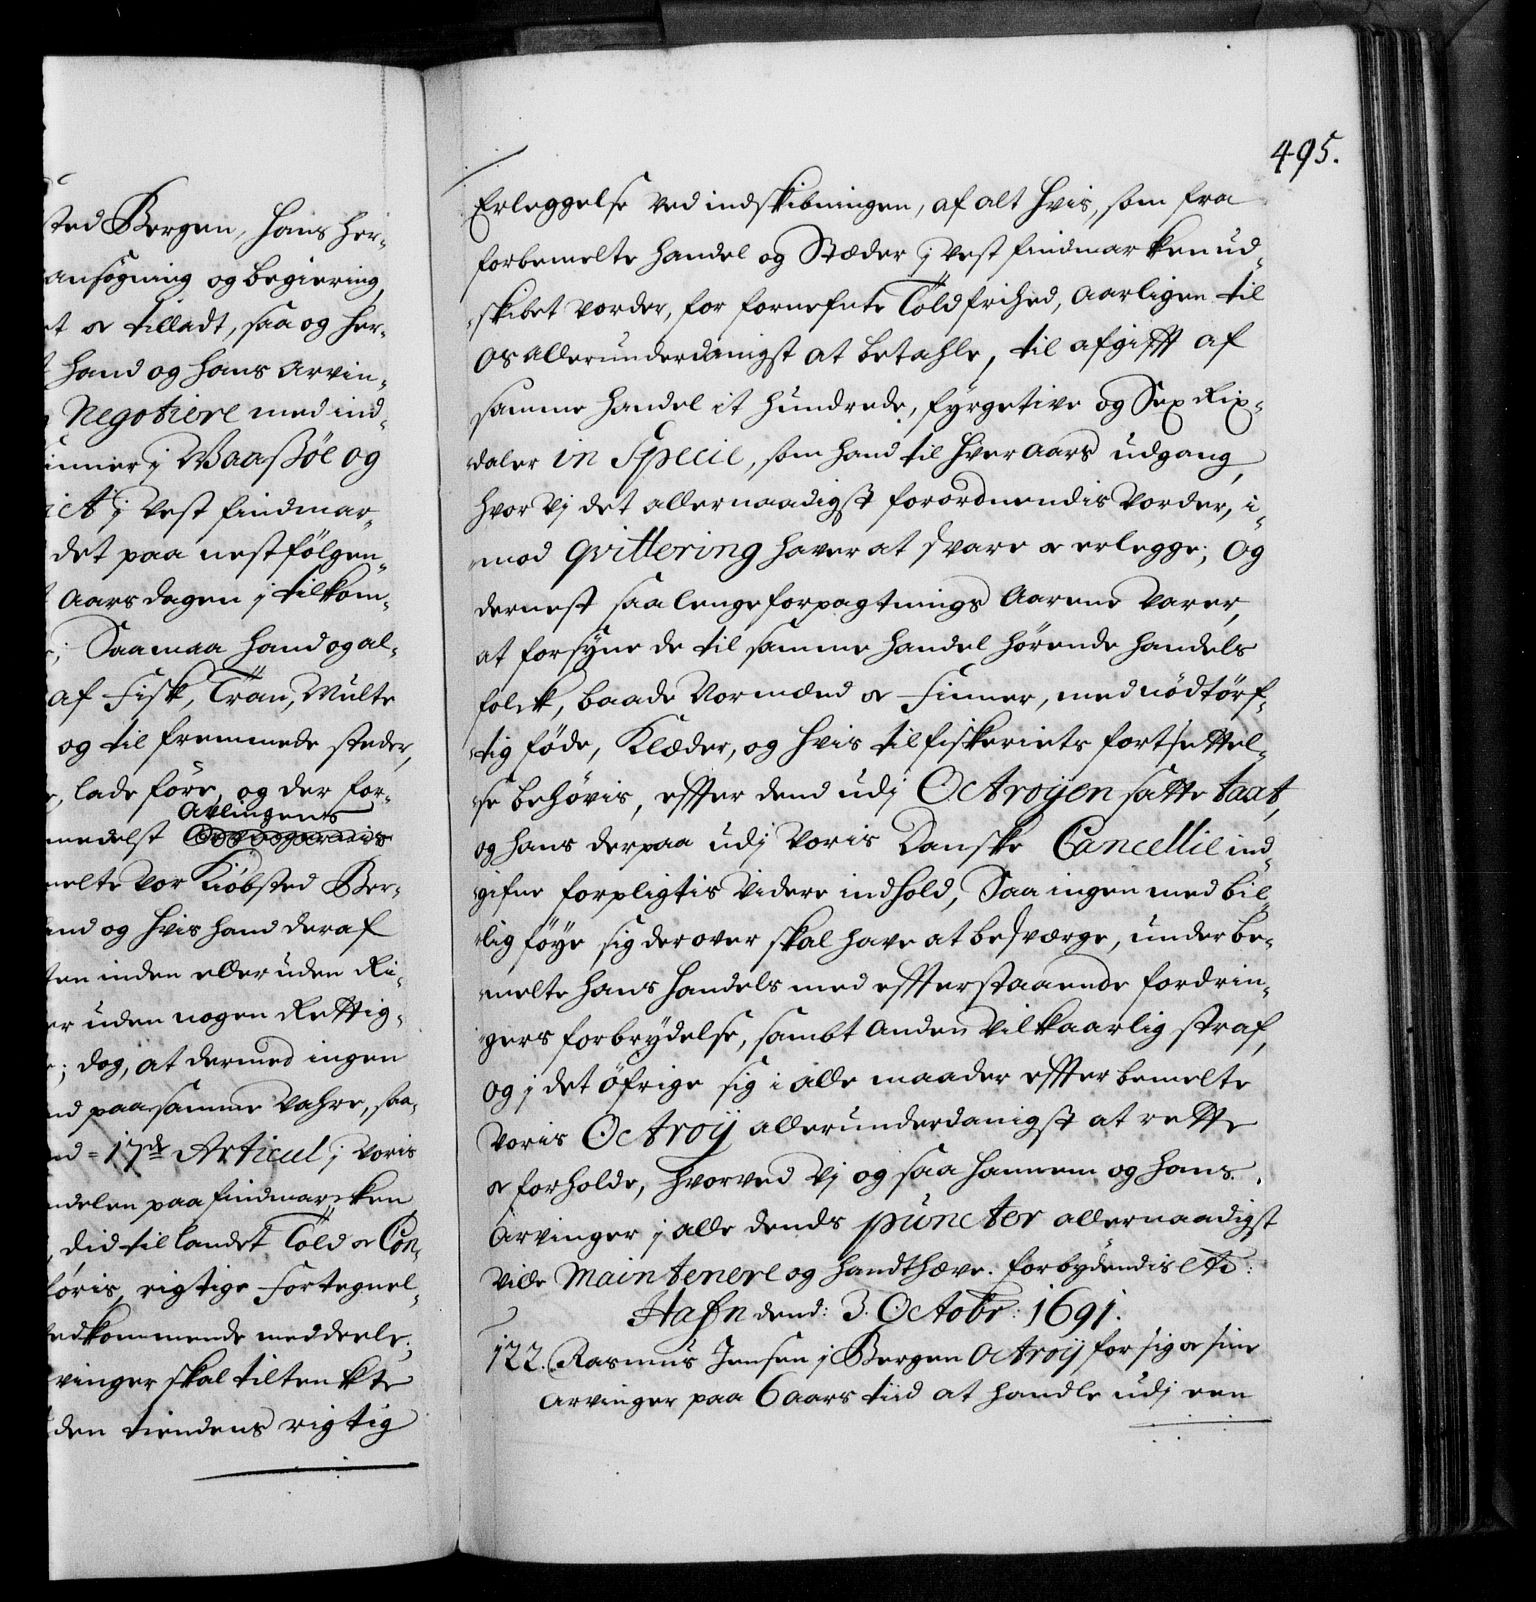 sted Bergen, hans her-
ansøgning og begiering,
et & tilladt, saa og her-
hand og hans Arvin-
Negotiere med ind-
inner j Waasøe og
ict j Vest Findmar-
det paa nestfølgen-
Aarsdagen j tilkom-
; Saa maa hand og al-
af Fisk, Tran, Multe
og til fremmede steder,
, lade føre, og der for-
Avlingens
medelst
melte vor Kiøbsted Ber-
and og hvis hand deraf
ten inden eller uden Ri-
er uden nogen Rettig-
; dog, at dermed ingen
nd paa samme Vahre, saa-
nd = 17de Articul j voris
ndelen paa Findmarcken
, did til landet Told & Con-
føris, rigtige Fortegnel-
vedkommende meddeele;
vinger skal tiltenkte
den tiendens rigtig
495.
Erleggelse ved indskibningen, af alt hvis, som fra
forbemelte handel og Stæder j Vest Findmarken ud-
skibet vorder, for fornefnte Toldfrihed, Aarligen til
Os allerunderdanigst at betahle, til afgifft af
samme handel it hundrede, fyrgetive og Sex Rix-
daler in Specie, som hand til hver Aars udgang,
hvor Vj det allernaadigst forordnendis vorder, i-
mod qvittering haver at svare & erlegge; Og
dernest saa lenge forpagtnings Aarene varer,
at forsyne de til samme handel hørende handels
folck, baade Normænd & Finner, med nødtørf-
tig føde, Klæder, og hvis til fiskeriets fortsettel-
se behøvis, effter dend udj Octroyen satte taxt,
og hans derpaa udj voris Danske Cancellie ind-
gifne forpligtis videre indhold, Saa ingen med bil-
lig føye sig derover skal have at besværge, under be-
melte hans handels med effterstaaende fordrin-
gers forbrydelse, sambt anden vilkaarlig straf,
og j det øfrige sig i alle maader effter bemelte
Voris Octroij allerunderdanigst at rette
& forholde, hvorved Vj og saa hannem og hans
Arvinger j alle dends puncter allernaadigst
ville Maintenere og handthæve. forbydendis etc:
Hafn dend: 3. Octobr: 1691.
122. Rasmus Jensen j Bergen Octroij for sig & sine
Arvinger paa 6 aars tiid at handle udj een